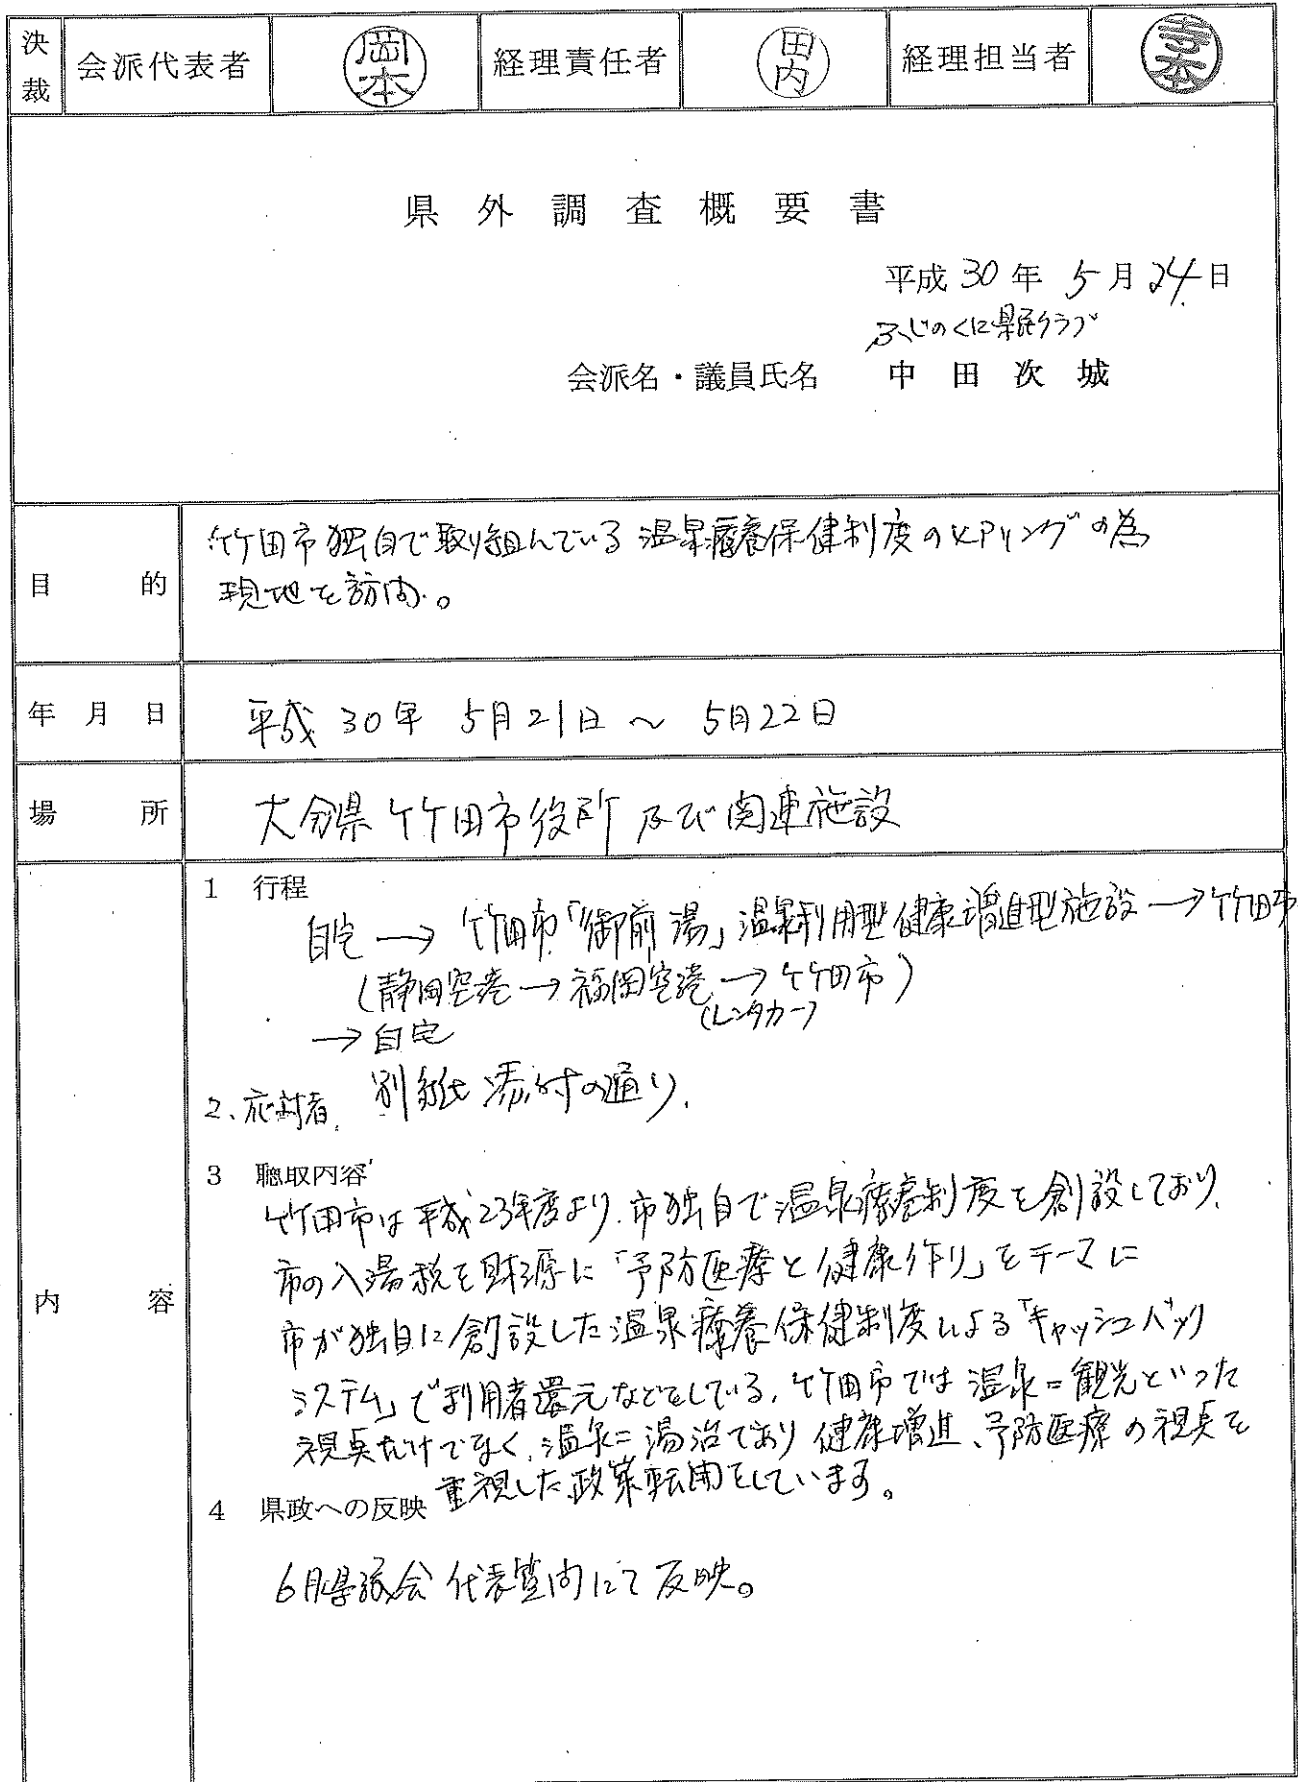 決裁 会派代表者 岡本 経理責任者 田内 経理担当者
県外調査概要書
平成30年5月24日
ふじのくに県民クラブ
会派名・議員氏名 中田次城
目的 竹田市独自で取り組んでいる温泉療養保健制度のヒアリングの為
現地を訪問。
年月日 平成30年 5月21日 ~ 5月22日
場所 大分県竹田市役所及び関連施設
内容
1 行程
自宅 → 竹田市「御前湯」温泉利用型健康増進型施設 → 竹田市
(静岡空港 → 福岡空港 → 竹田市)
(レンタカー)
→ 自宅
2、応対者 別紙添付の通り.
3 聴取内容
竹田市は平成23年度より、市独自で温泉療養制度を創設しており、
市の入湯税を財源に「予防医療と健康作り」をテーマに
市が独自に創設した温泉療養保健制度による「キャッシュバック
システム」で利用者還元などをしている。竹田市では温泉=観光といった
視点だけでなく、温泉=湯治であり健康増進、予防医療の視点を
重視した政策転開をしています。
4 県政への反映
6月県議会代表質問にて反映。